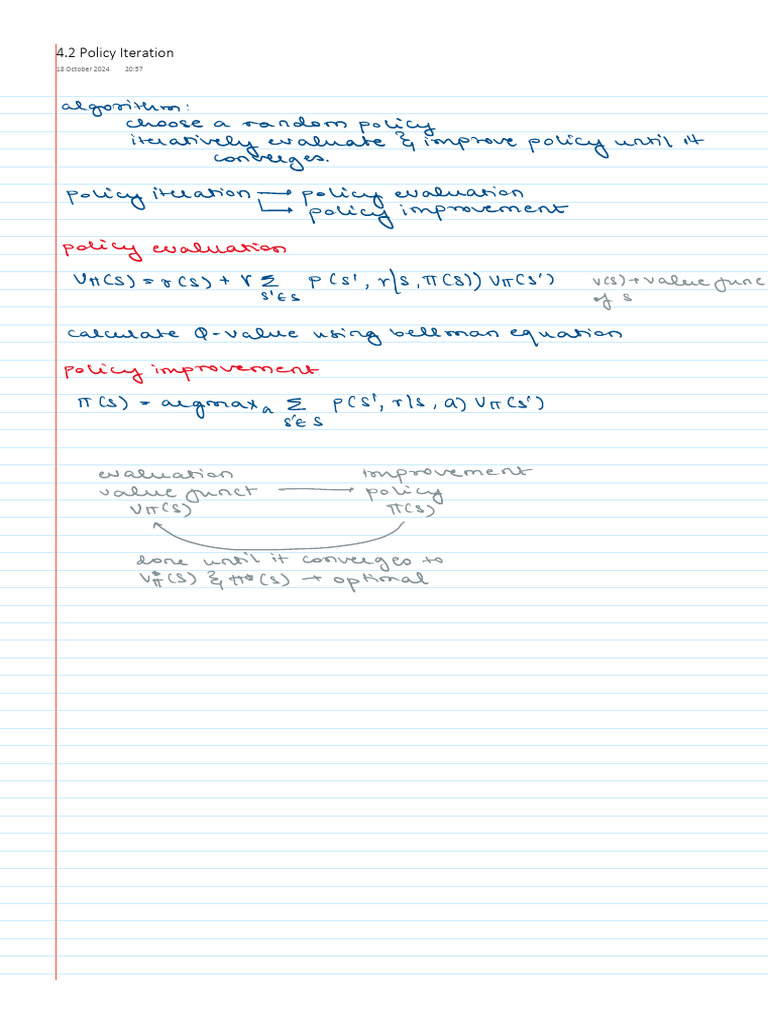 4.2 Policy Iteration
18 October 2024 20:57
algorithm:
choose a random policy
iteratively evaluate & improve policy until it
converges.
policy iteration → policy evaluation
→ policy improvement
policy evaluation
Vπ(s) = r(s) + γ Σ p(s', r|s, π(s)) Vπ(s') v(s) → value func
s'∈s of s
calculate Q-value using bellman equation
policy improvement
π(s) = argmaxₐ Σ p(s', r|s, a) Vπ(s')
s'∈s
evaluation improvement
value funct → policy
Vπ(s) π(s)
done until it converges to
V*π(s) & π*(s) → optimal